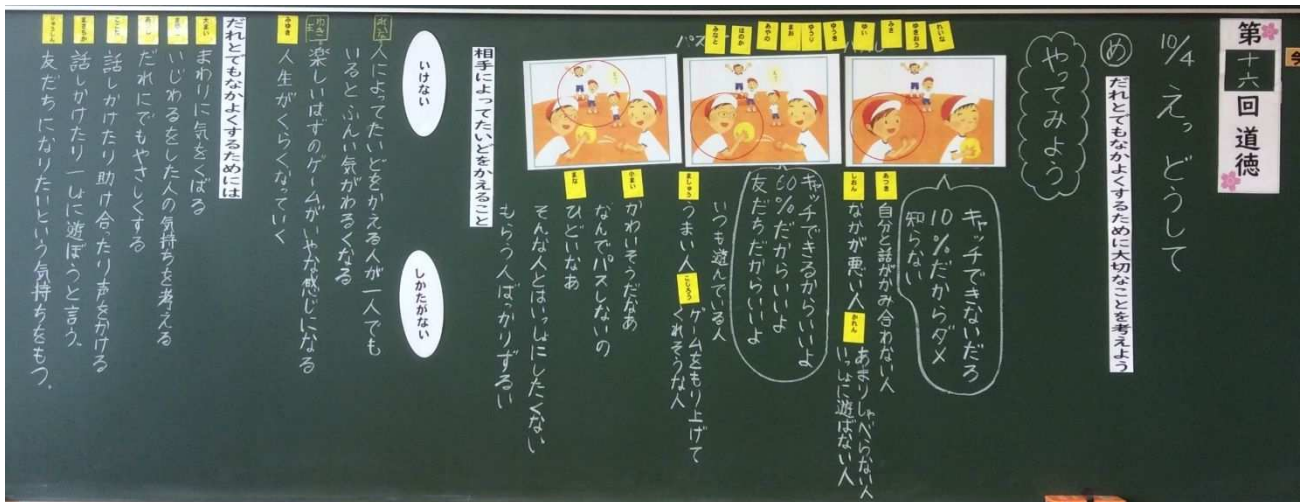 第十六回道徳
10/4 えっ、どうして
め だれとでもなかよくするために大切なことを考えよう
やってみよう
れいな
ゆきおう
みき
ゆい
ゆうき
ゆうり
まお
あやの
ほのか
みなと
パス
キャッチできないだろ
10%だからダメ
知らない
あつき
自分と話がかみ合わない人
しおん
なかが悪い人
かれん
あまりしゃべらない人
いっしょに遊ばない人
キャッチできるからいいよ
60%だからいいよ
友だちだからいいよ
いつも遊んでいる人
ましゅう
うまい人
こじろう
ゲームをもり上げて
くれそうな人
かわいそうだなあ
なんでパスしないの
まな
ひどいなあ
そんな人とはいっしょにしたくない
もらう人ばっかりずるい
相手によってたいどをかえること
いけない
しかたがない
人によってたいどをかえる人が一人でも
いるとふんい気がわるくなる
楽しいはずのゲームがいやな感じになる
みゆき
人生がくらくなっていく
だれとでもなかよくするためには
まわりに気をくばる
いじわるをした人の気持ちを考える
あし
だれにでもやさしくする
話しかけたり助け合ったり声をかける
まさちか
話しかけたり一しょに遊ぼうと言う。
しょうしん
友だちになりたいという気持ちをもつ。